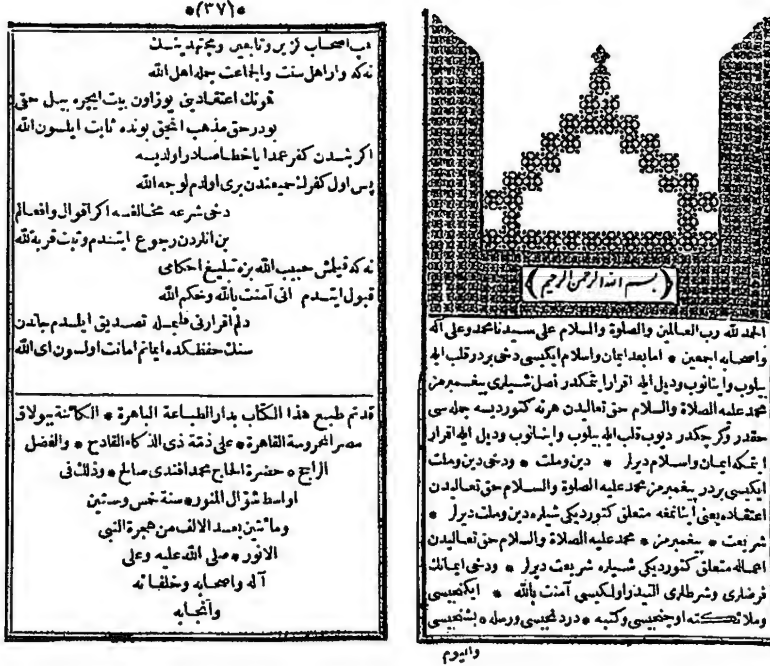 بسم الله الرحمن الرحيم
الحمد لله رب العالمين والصلوة والسلام على سيدنا محمد وعلى آله
واصحابه اجمعين * اما بعد ايمان واسلام ايكيسى دخى بردر قلب ايله
بيلوب واينانوب وديل ايله اقرار ايتمكدر اصل شيلرى پيغمبرمز
محمد عليه الصلاة والسلام حق تعاليدن هرنه كتورديسه جله سى
حقدر وكرچكدر ديوب قلب ايله بيلوب واينانوب وديل ايله اقرار
ايتمكه ايمان واسلام ديرلر * دين وملت * ودخى دين وملت
ايكيسى بردر پيغمبرمز محمد عليه الصلوة والسلام حق تعاليدن
اعتقاده يعنى اينانمغه متعلق كتورديكى شيلره دين وملت ديرلر *
شريعت * پيغمبرمز * محمد عليه الصلاة والسلام حق تعاليدن
اعماله متعلق كتورديكى شيلره شريعت ديرلر * ودخى ايمانك
فرضلرى وشرطلرى التيدر اولكيسى آمنت بالله * ايكنجيسى
وملائكته اوچنجيسى وكتبه * دردنجيسى ورسله * بشنجيسى
واليوم
*(٣٧)*
اصحاب وتابعين ومجتهدينك
نه كه وار اهل سنت والجماعت جله اهل الله
اعتقادين يوز اون بيت ايچره بيل حق
بودر حق مذهب انجق بونده ثابت ايلسون الله
اكر بندن كفر عمدا يا خطا صادر اولديسه
پس اول كفرك جميعندن برى اولدم لوجه الله
دخى شرعه مخالفسه اكر اقوال وافعالم
بن انلردن رجوع ايتدم وتبت قربة لله
نه كه قيلمش حبيب الله بزه تبليغ احكامى
قبول ايتدم انى آمنت بالله وحكم الله
دلم اقرارنى قلبمله تصديق ايلدم جاندن
سنك حفظكده ايمانم امانت اولسون اى الله
قد تم طبع هذا الكتاب بدار الطباعة الباهرة * الكائنة ببولاق
مصر المحروسة القاهرة * على ذمة ذى الذكاء القادح * والفضل
الراجح * حضرة الحاج محمد افندى صالح * وذلك فى
اواسط شوال المنور * سنة خمس وستين
ومائتين بعد الالف من هجرة النبى
الانور * صلى الله عليه وعلى
آله واصحابه وخلفائه
وانجابه